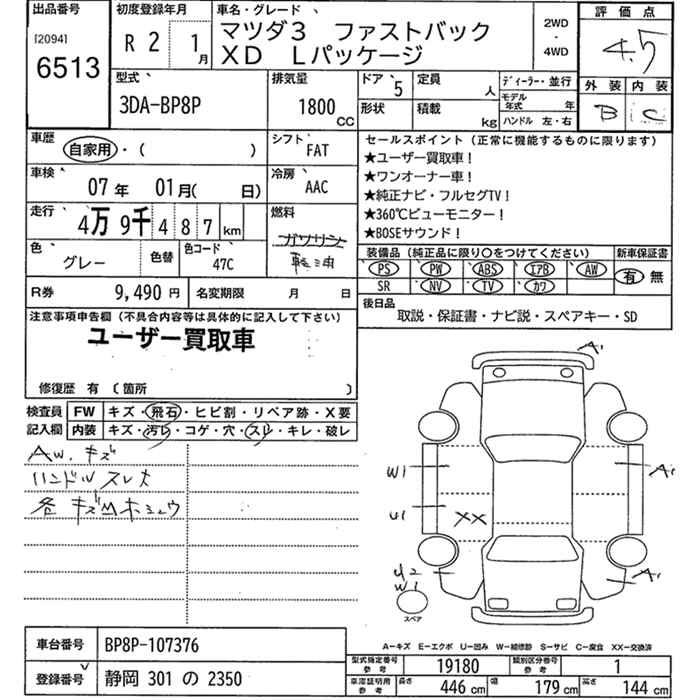 出品番号
[2094]
6513
初度登録年月
R 2 1月
車名・グレード
マツダ3 ファストバック
XD Lパッケージ
2WD
・
4WD
評価点
4.5
外装 内装
B C
型式
3DA-BP8P
排気量
1800 CC
ドア 5
形状
定員 人
積載 kg
ディーラー・並行
モデル年式 年
ハンドル 左・右
車歴
自家用・( )
車検
07年 01月( 日)
走行
4万9千487km
色
グレー
色替
色コード
47C
シフト
FAT
冷房
AAC
燃料
ガソリン
軽油
セールスポイント(正常に機能するものに限ります)
★ユーザー買取車!
★ワンオーナー車!
★純正ナビ・フルセグTV!
★360℃ビューモニター!
★BOSEサウンド!
装備品(純正品に限り○をつけてください)
PS PW ABS エアB AW
SR NV TV カワ
新車保証書
有 無
R券 9,490円
名変期限 月 日
後日品
取説・保証書・ナビ説・スペアキー・SD
注意事項申告欄(不具合内容等は具体的に記入して下さい)
ユーザー買取車
修復歴 有 〔箇所 〕
検査員
記入欄
FW キズ・飛石・ヒビ割・リペア跡・X要
内装 キズ・汚レ・コゲ・穴・スレ・キレ・破レ
AW. キズ
ハンドルスレ大
各キズMホシュウ
A1
W1
U1
XX
A1
U2
W1
A1
スペア
A−キズ E−エクボ U−凹み W−補修跡 S−サビ C−腐食 XX−交換済
車台番号 BP8P-107376
登録番号 静岡 301 の 2350
型式指定番号 参考 19180
類別区分番号 参考 1
車庫証明用 参考
長さ 446 cm 幅 179 cm 高さ 144 cm